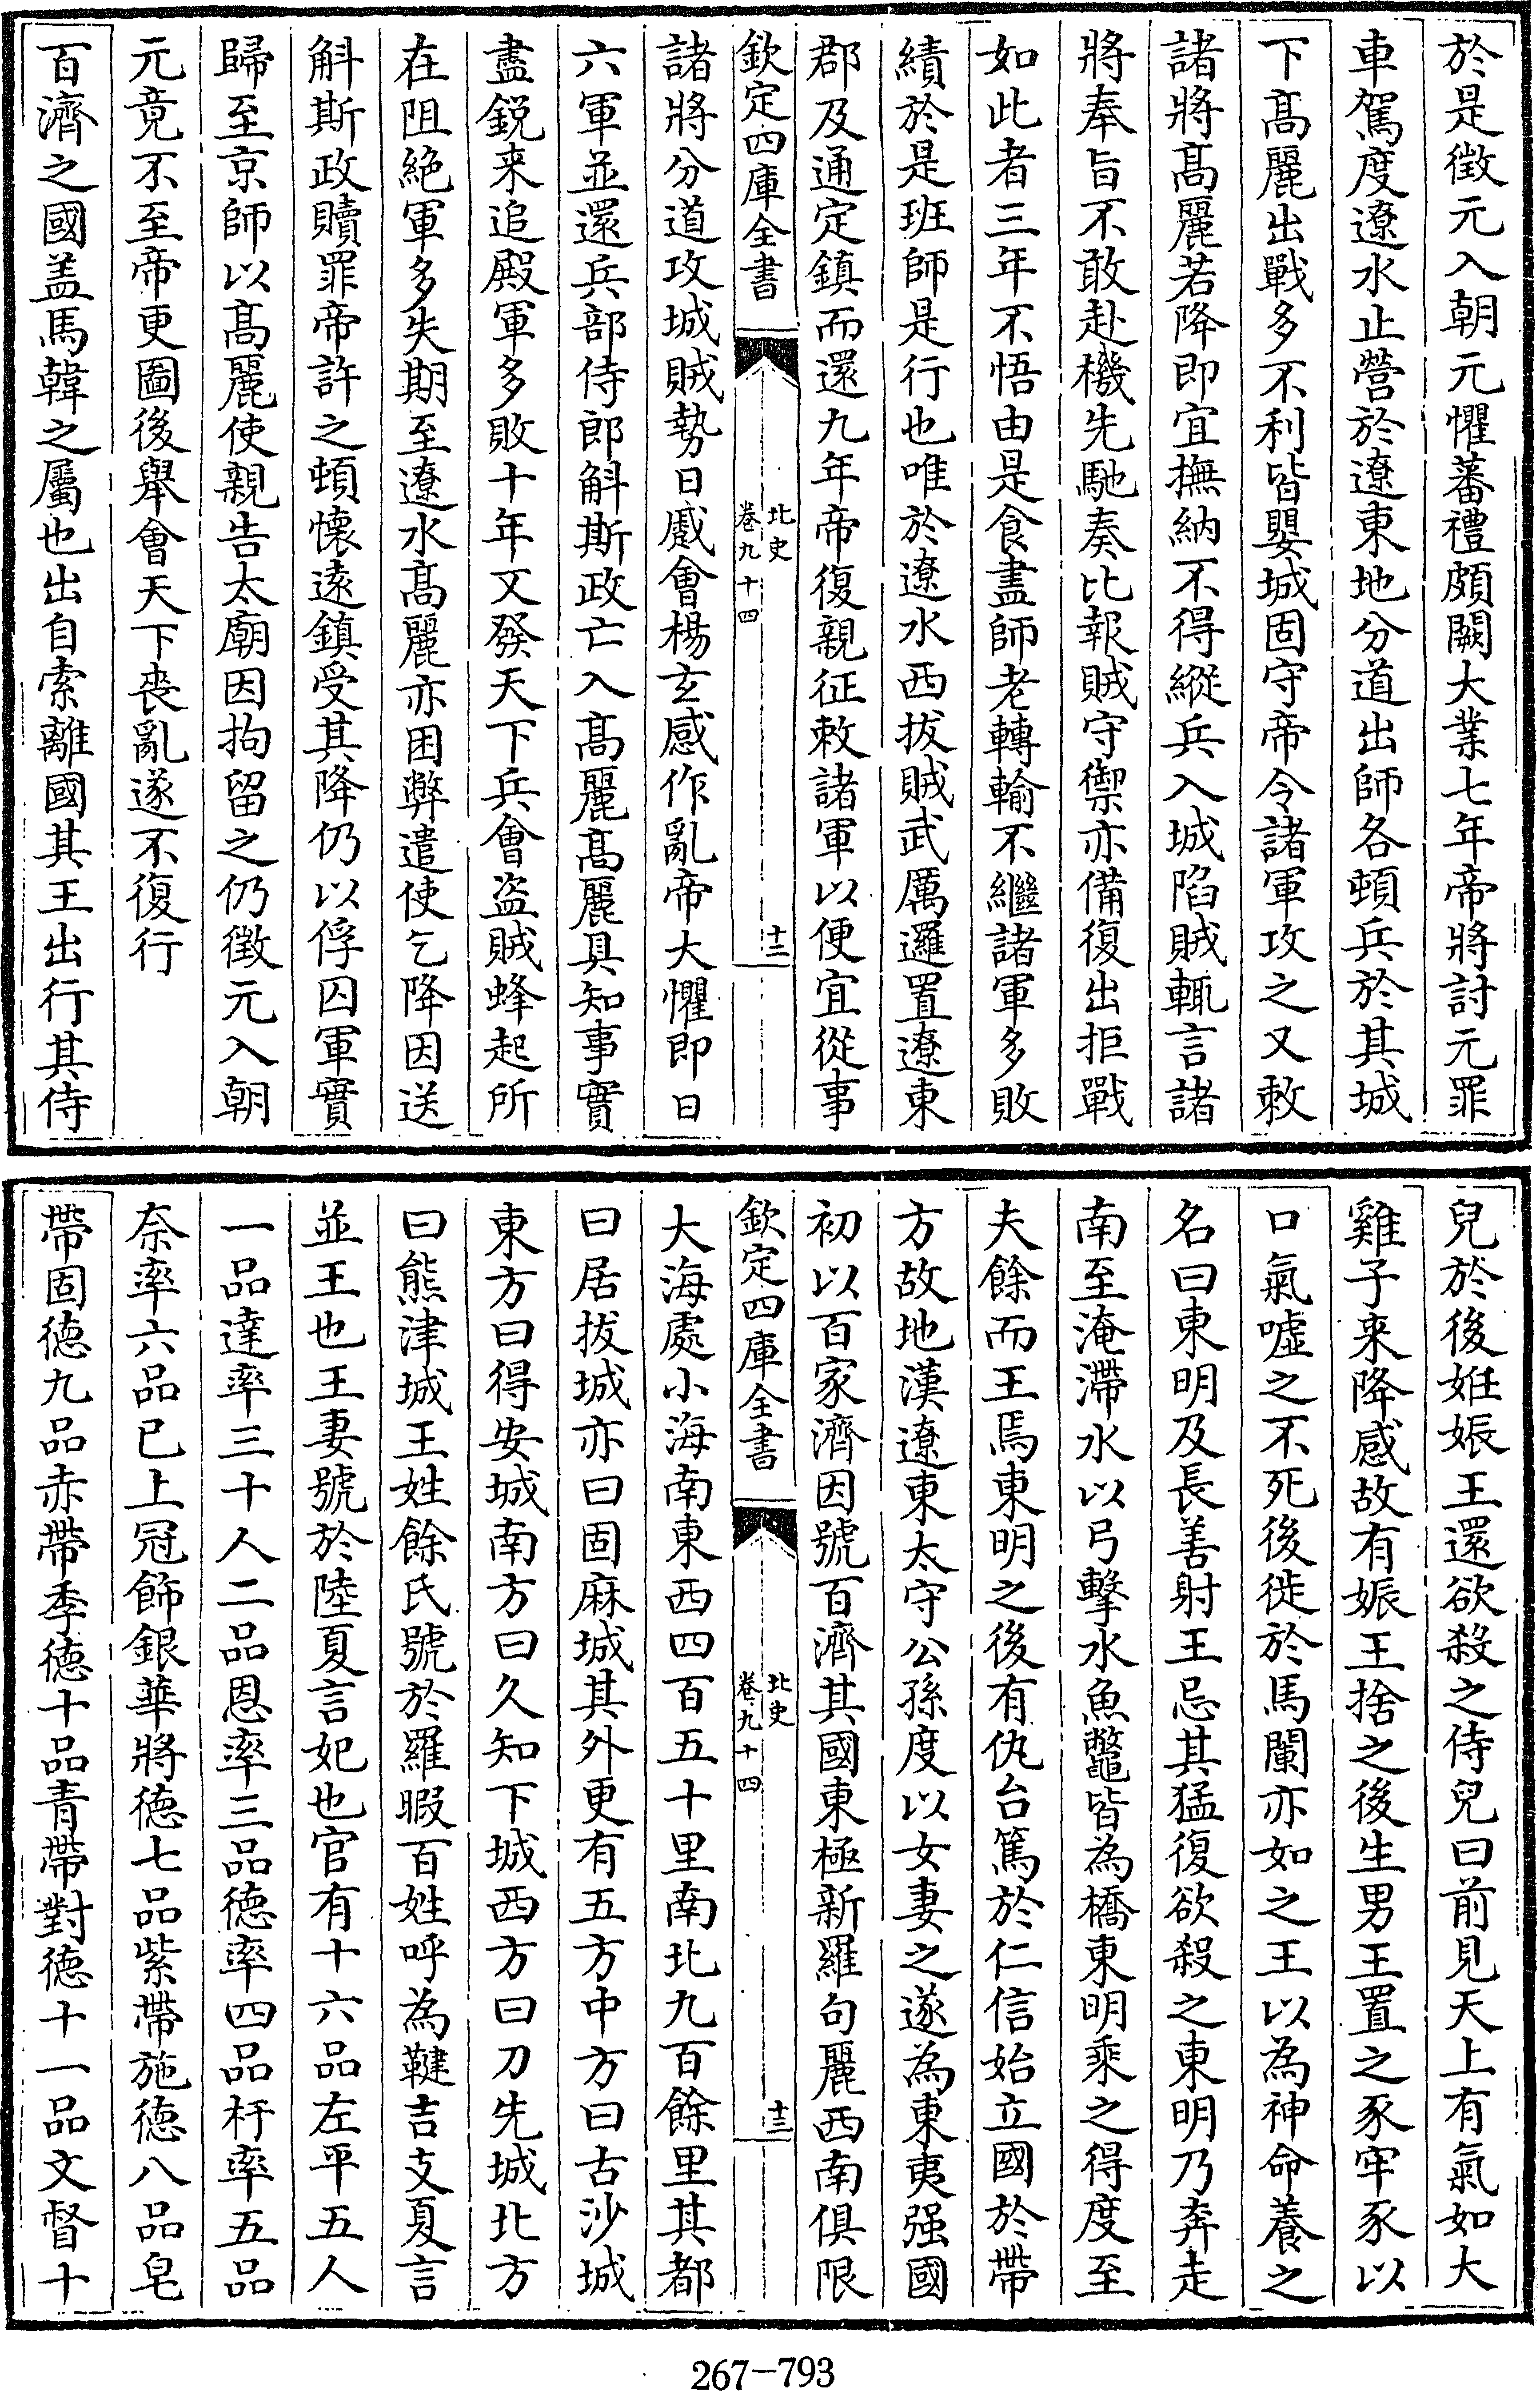 於是徵元入朝元懼蕃禮頗闕大業七年帝將討元罪
車駕度遼水止營於遼東地分道出師各頓兵於其城
下髙麗出戰多不利皆嬰城固守帝令諸軍攻之又敕
諸將髙麗若降即宜撫納不得縱兵入城陷賊輒言諸
將奉旨不敢赴機先馳奏比報賊守禦亦備復出拒戰
如此者三年不悟由是食盡師老轉輸不繼諸軍多敗
績於是班師是行也唯於遼水西拔賊武厲邏置遼東
郡及通定鎮而還九年帝復親征敕諸軍以便宜從事
欽定四庫全書
北史
卷九十四
十二
諸將分道攻城賊勢日蹙會楊玄感作亂帝大懼即日
六軍並還兵部侍郎斛斯政亡入髙麗髙麗具知事實
盡鋭来追殿軍多敗十年又發天下兵會盗賊蜂起所
在阻絶軍多失期至遼水髙麗亦困弊遣使乞降因送
斛斯政贖罪帝許之頓懷遠鎮受其降仍以俘囚軍實
歸至京師以髙麗使親告太廟因拘留之仍徵元入朝
元竟不至帝更圖後舉會天下喪亂遂不復行
百濟之國盖馬韓之屬也出自索離國其王出行其侍
兒於後妊娠王還欲殺之侍兒曰前見天上有氣如大
雞子来降感故有娠王捨之後生男王置之豕牢豕以
口氣嘘之不死後徙於馬闌亦如之王以為神命養之
名曰東明及長善射王忌其猛復欲殺之東明乃奔走
南至淹滯水以弓擊水魚鼈皆為橋東明乘之得度至
夫餘而王焉東明之後有仇台篤於仁信始立國於帶
方故地漢遼東太守公孫度以女妻之遂為東夷强國
初以百家濟因號百濟其國東極新羅句麗西南俱限
欽定四庫全書
北史
卷九十四
十三
大海處小海南東西四百五十里南北九百餘里其都
曰居拔城亦曰固麻城其外更有五方中方曰古沙城
東方曰得安城南方曰久知下城西方曰刀先城北方
曰熊津城王姓餘氏號於羅暇百姓呼為鞬吉支夏言
並王也王妻號於陸夏言妃也官有十六品左平五人
一品達率三十人二品恩率三品德率四品杆率五品
奈率六品已上冠飾銀華將德七品紫帶施德八品皂
帶固德九品赤帶季德十品青帶對德十一品文督十
267-793